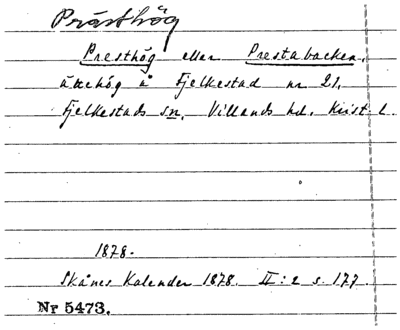 Prästhög
Presthög eller Prestabacken,
ättehög å Fjelkestad nr 21.
Fjelkestads sn, Villands hd. Krist l.
1878.
Skånes Kalender 1878. II:2 s. 177.
Nr 5473.